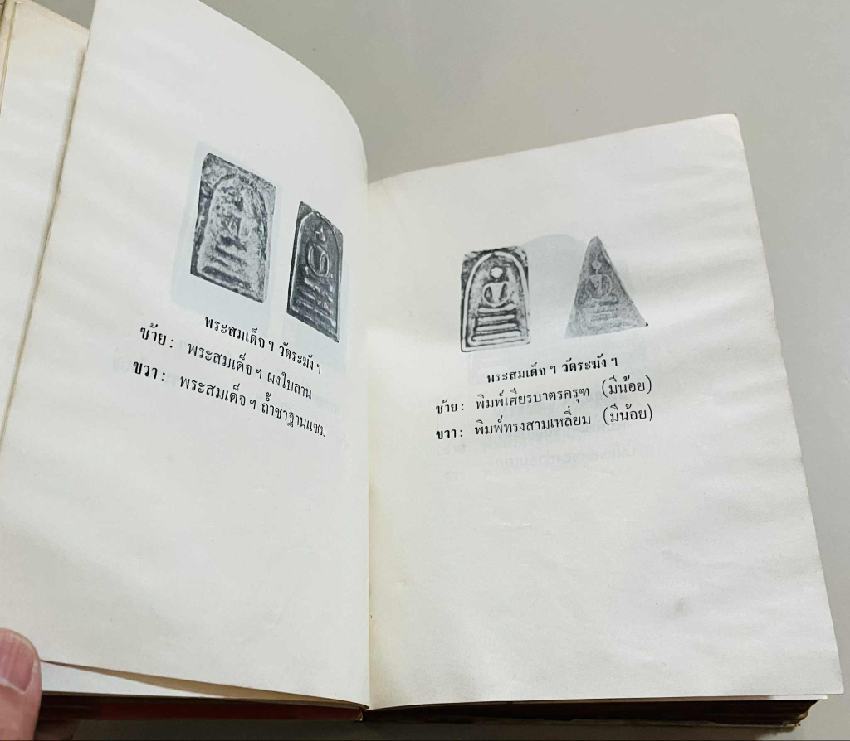 พระสมเด็จฯ วัดระฆังฯ
ซ้าย: พระสมเด็จฯ ผงใบลาน
ขวา: พระสมเด็จฯ ถ้ำชา
พระสมเด็จฯ วัดระฆังฯ
ซ้าย: พิมพ์เศียรบาตรครุฑ (มีน้อย)
ขวา: พิมพ์ทรงสามเหลี่ยม (มีน้อย)